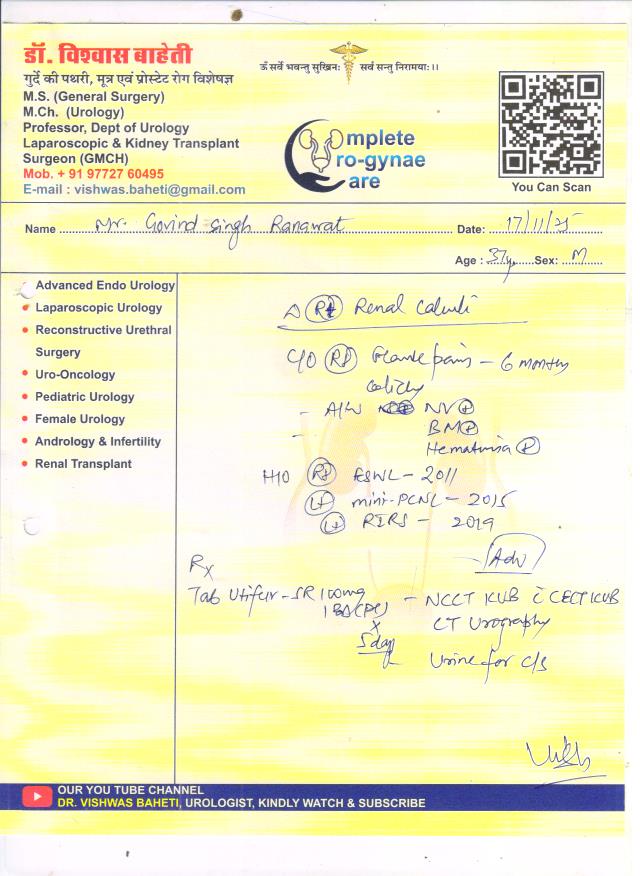 डॉ. विश्वास बाहेती
गुर्दे की पथरी, मूत्र एवं प्रोस्टेट रोग विशेषज्ञ
M.S. (General Surgery)
M.Ch. (Urology)
Professor, Dept of Urology
Laparoscopic & Kidney Transplant
Surgeon (GMCH)
Mob. + 91 97727 60495
E-mail : vishwas.baheti@gmail.com
ॐ सर्वे भवन्तु सुखिनः सर्व सन्तु निरामयाः।।
omplete
ro-gynae
are
You Can Scan
Name Mr. Govind Singh Ranawat Date: 17/11/25
Age : 37y Sex: M
Advanced Endo Urology
Laparoscopic Urology
Reconstructive Urethral
Surgery
Uro-Oncology
Pediatric Urology
Female Urology
Andrology & Infertility
Renal Transplant
Δ Rt Renal Calculi
C/O Rt Flank pain - 6 months
colicky
- A/W NV+
- BM+
Hematuria +
H/O Rt ESWL - 2011
Lt mini-PCNL - 2015
Lt RIRS - 2019
Rx
Adv
Tab -SR 100mg
1 BD (PC)
x
5 day
- NCCT KUB c̄ CECT KUB
CT Urography
Urine for c/s
OUR YOU TUBE CHANNEL
DR. VISHWAS BAHETI, UROLOGIST, KINDLY WATCH & SUBSCRIBE